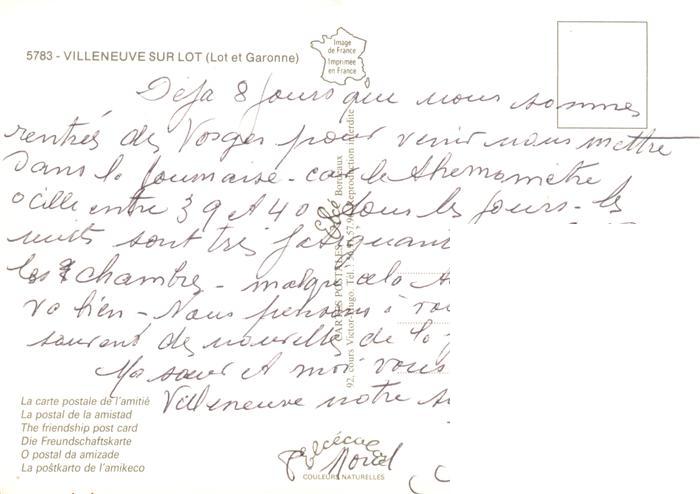 5783 - VILLENEUVE SUR LOT (Lot et Garonne)
Image
de France
Imprimée
en France
Déjà 8 jours que nous sommes
rentrés des Vosges pour venir nous mettre
dans la fournaise - car le thermomètre
ocille entre 39 et 40 tous les jours - les
nuits sont très fatiguan
les chambres - malgré cela
va bien - Nous pensons à
souvent des nouvelles de la
Ma sœur et moi vous
Villeneuve notre
Morel
CARTES POSTALES Elcé Bordeaux
92, cours Victor-Hugo. Tél. Reproduction interdite
La carte postale de l'amitié
La postal de la amistad
The friendship post card
Die Freundschaftskarte
O postal da amizade
La poŝtkarto de l'amikeco
COULEURS NATURELLES